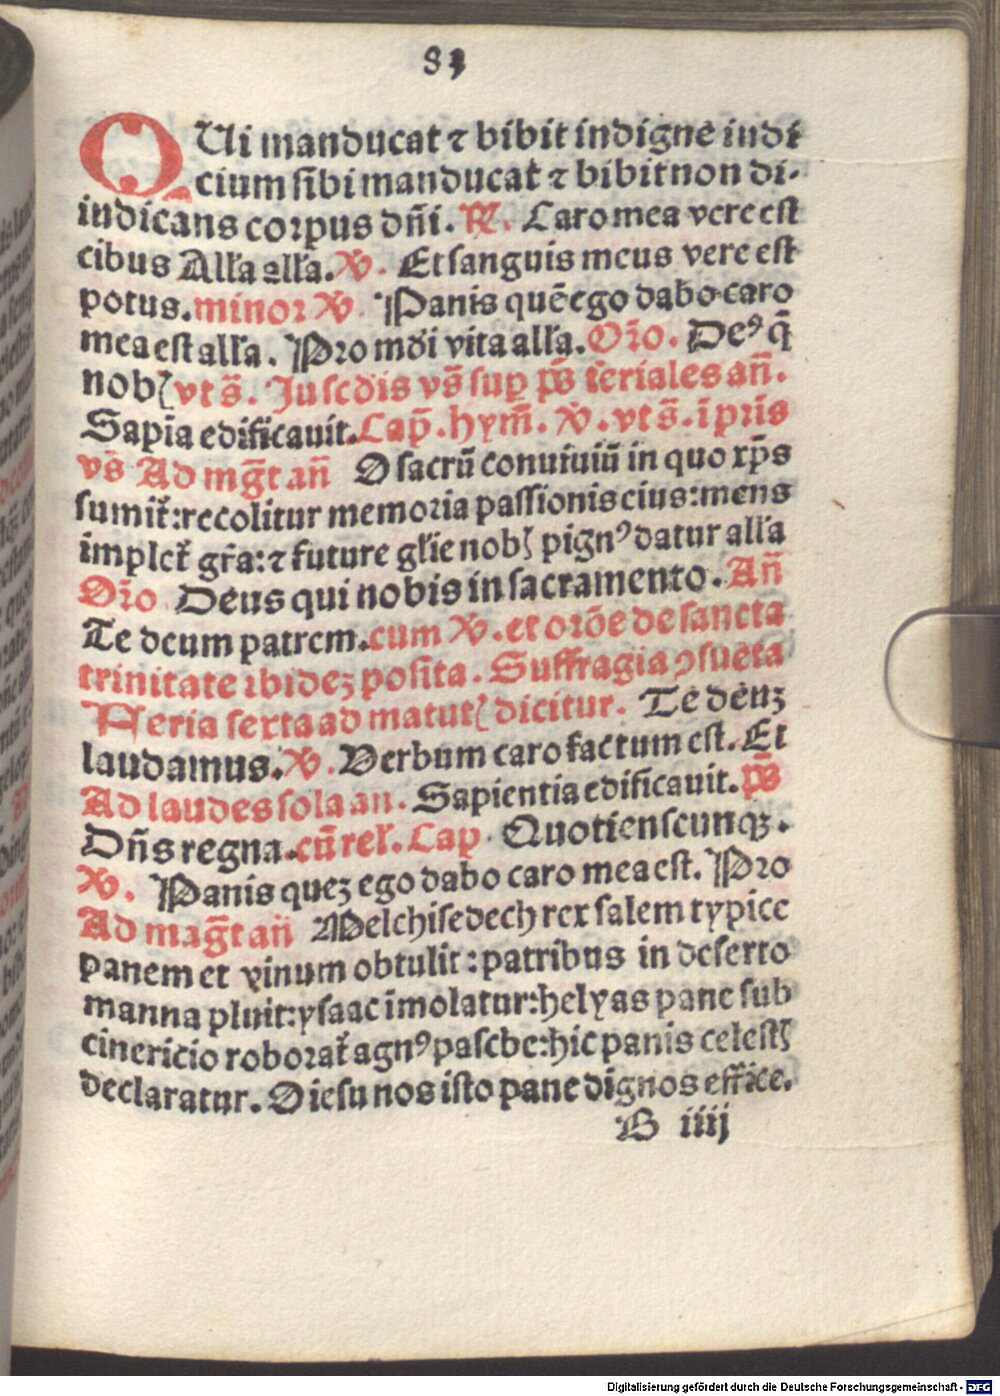 83
QUi manducat ⁊ bibit indigne iudi
cium sibi manducat ⁊ bibit non di-
iudicans corpus dñi. ℟. Caro mea vere est
cibus Alľa alľa. ℣. Et sanguis meus vere est
potus. minor ℣. Panis quē ego dabo caro
mea est alľa. Pro mūdi vita alľa. Oro̅. Deꝰ q̄
nobꝭ vt s̄. In scđis vs̄ sup ps̄ feriales an̄.
Sapīa edificauit. Cap̄. hym̄. ℣. vt s̄. ī prīs
vs̄ Ad mg̅t an̄ O sacrū conuiuiū in quo xp̄s
sumiť: recolitur memoria passionis eius: mens
impleť gr̄a: ⁊ future gľie nobꝭ pignꝰ datur alľa
Oro̅ Deus qui nobis in sacramento. An̄
Te deum patrem. cum ℣. et orōe de sancta
trinitate ibidez posita. Suffragia ꝯsueta
Feria sexta ad matutꝭ dicitur. Te deuz
laudamus. ℣. Verbum caro factum est. Et
Ad laudes sola an. Sapientia edificauit. ps̄
Dn̄s regna. cū reľ. Cap Quotienscunqꝫ.
℣. Panis quez ego dabo caro mea est. Pro
Ad mag̅t an̄ Melchisedech rex salem typice
panem et vinum obtulit: patribus in deserto
manna pluit: ysaac īmolatur: helyas pane sub
cinericio roborať agnꝰ pasche: hic panis celestꝭ
declaratur. O iesu nos isto pane dignos effice.
B iiij
Digitalisierung gefördert durch die Deutsche Forschungsgemeinschaft - DFG